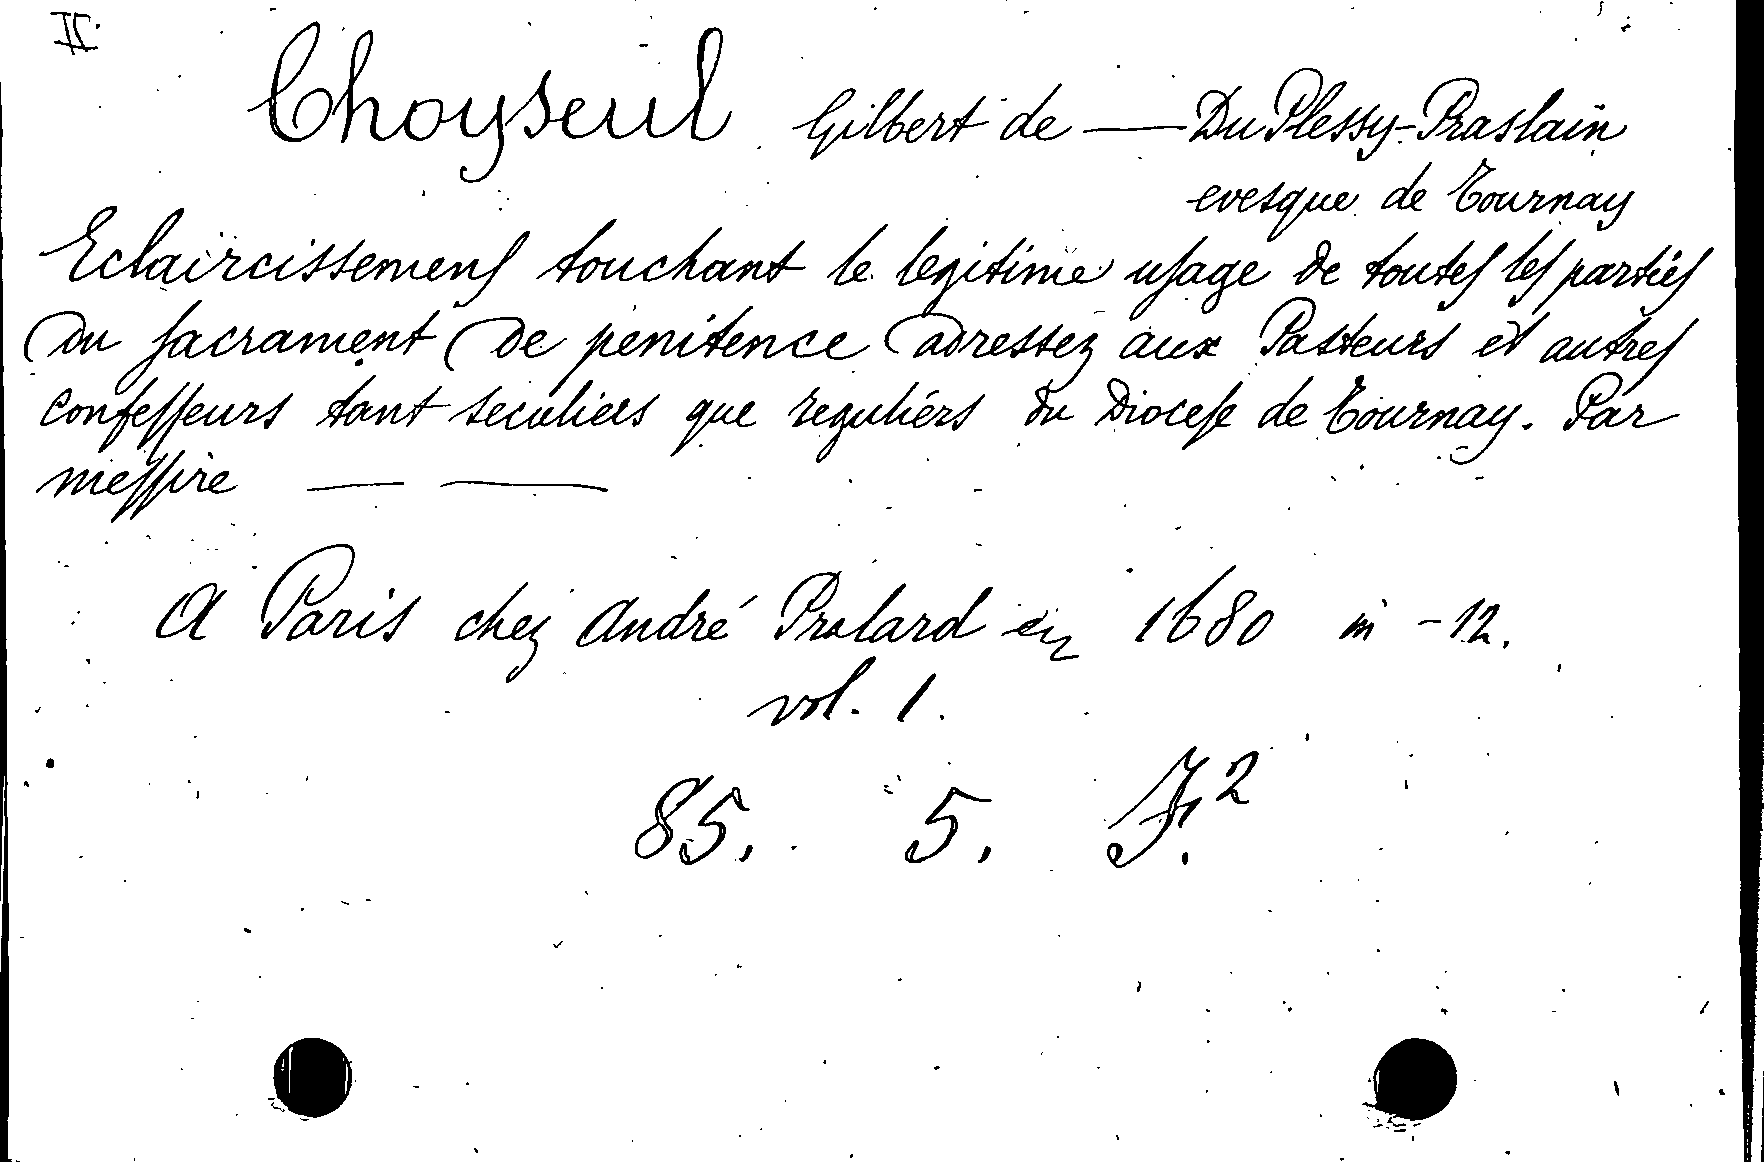 II.
Choyseul Gilbert de — Du Plessy-Praslain
evesque de Tournay
Eclaircissemenſ touchant le legitime uſage de touteſ leſ partieſ
du ſacrament de penitence adressez aux Pasteurs et autreſ
confeſſeurs tant seculiers que reguliers du Dioceſe de Tournay. Par
meſſire — —
A Paris chez André Pralard en 1680 in -12.
vol. 1.
85. 5. F.²